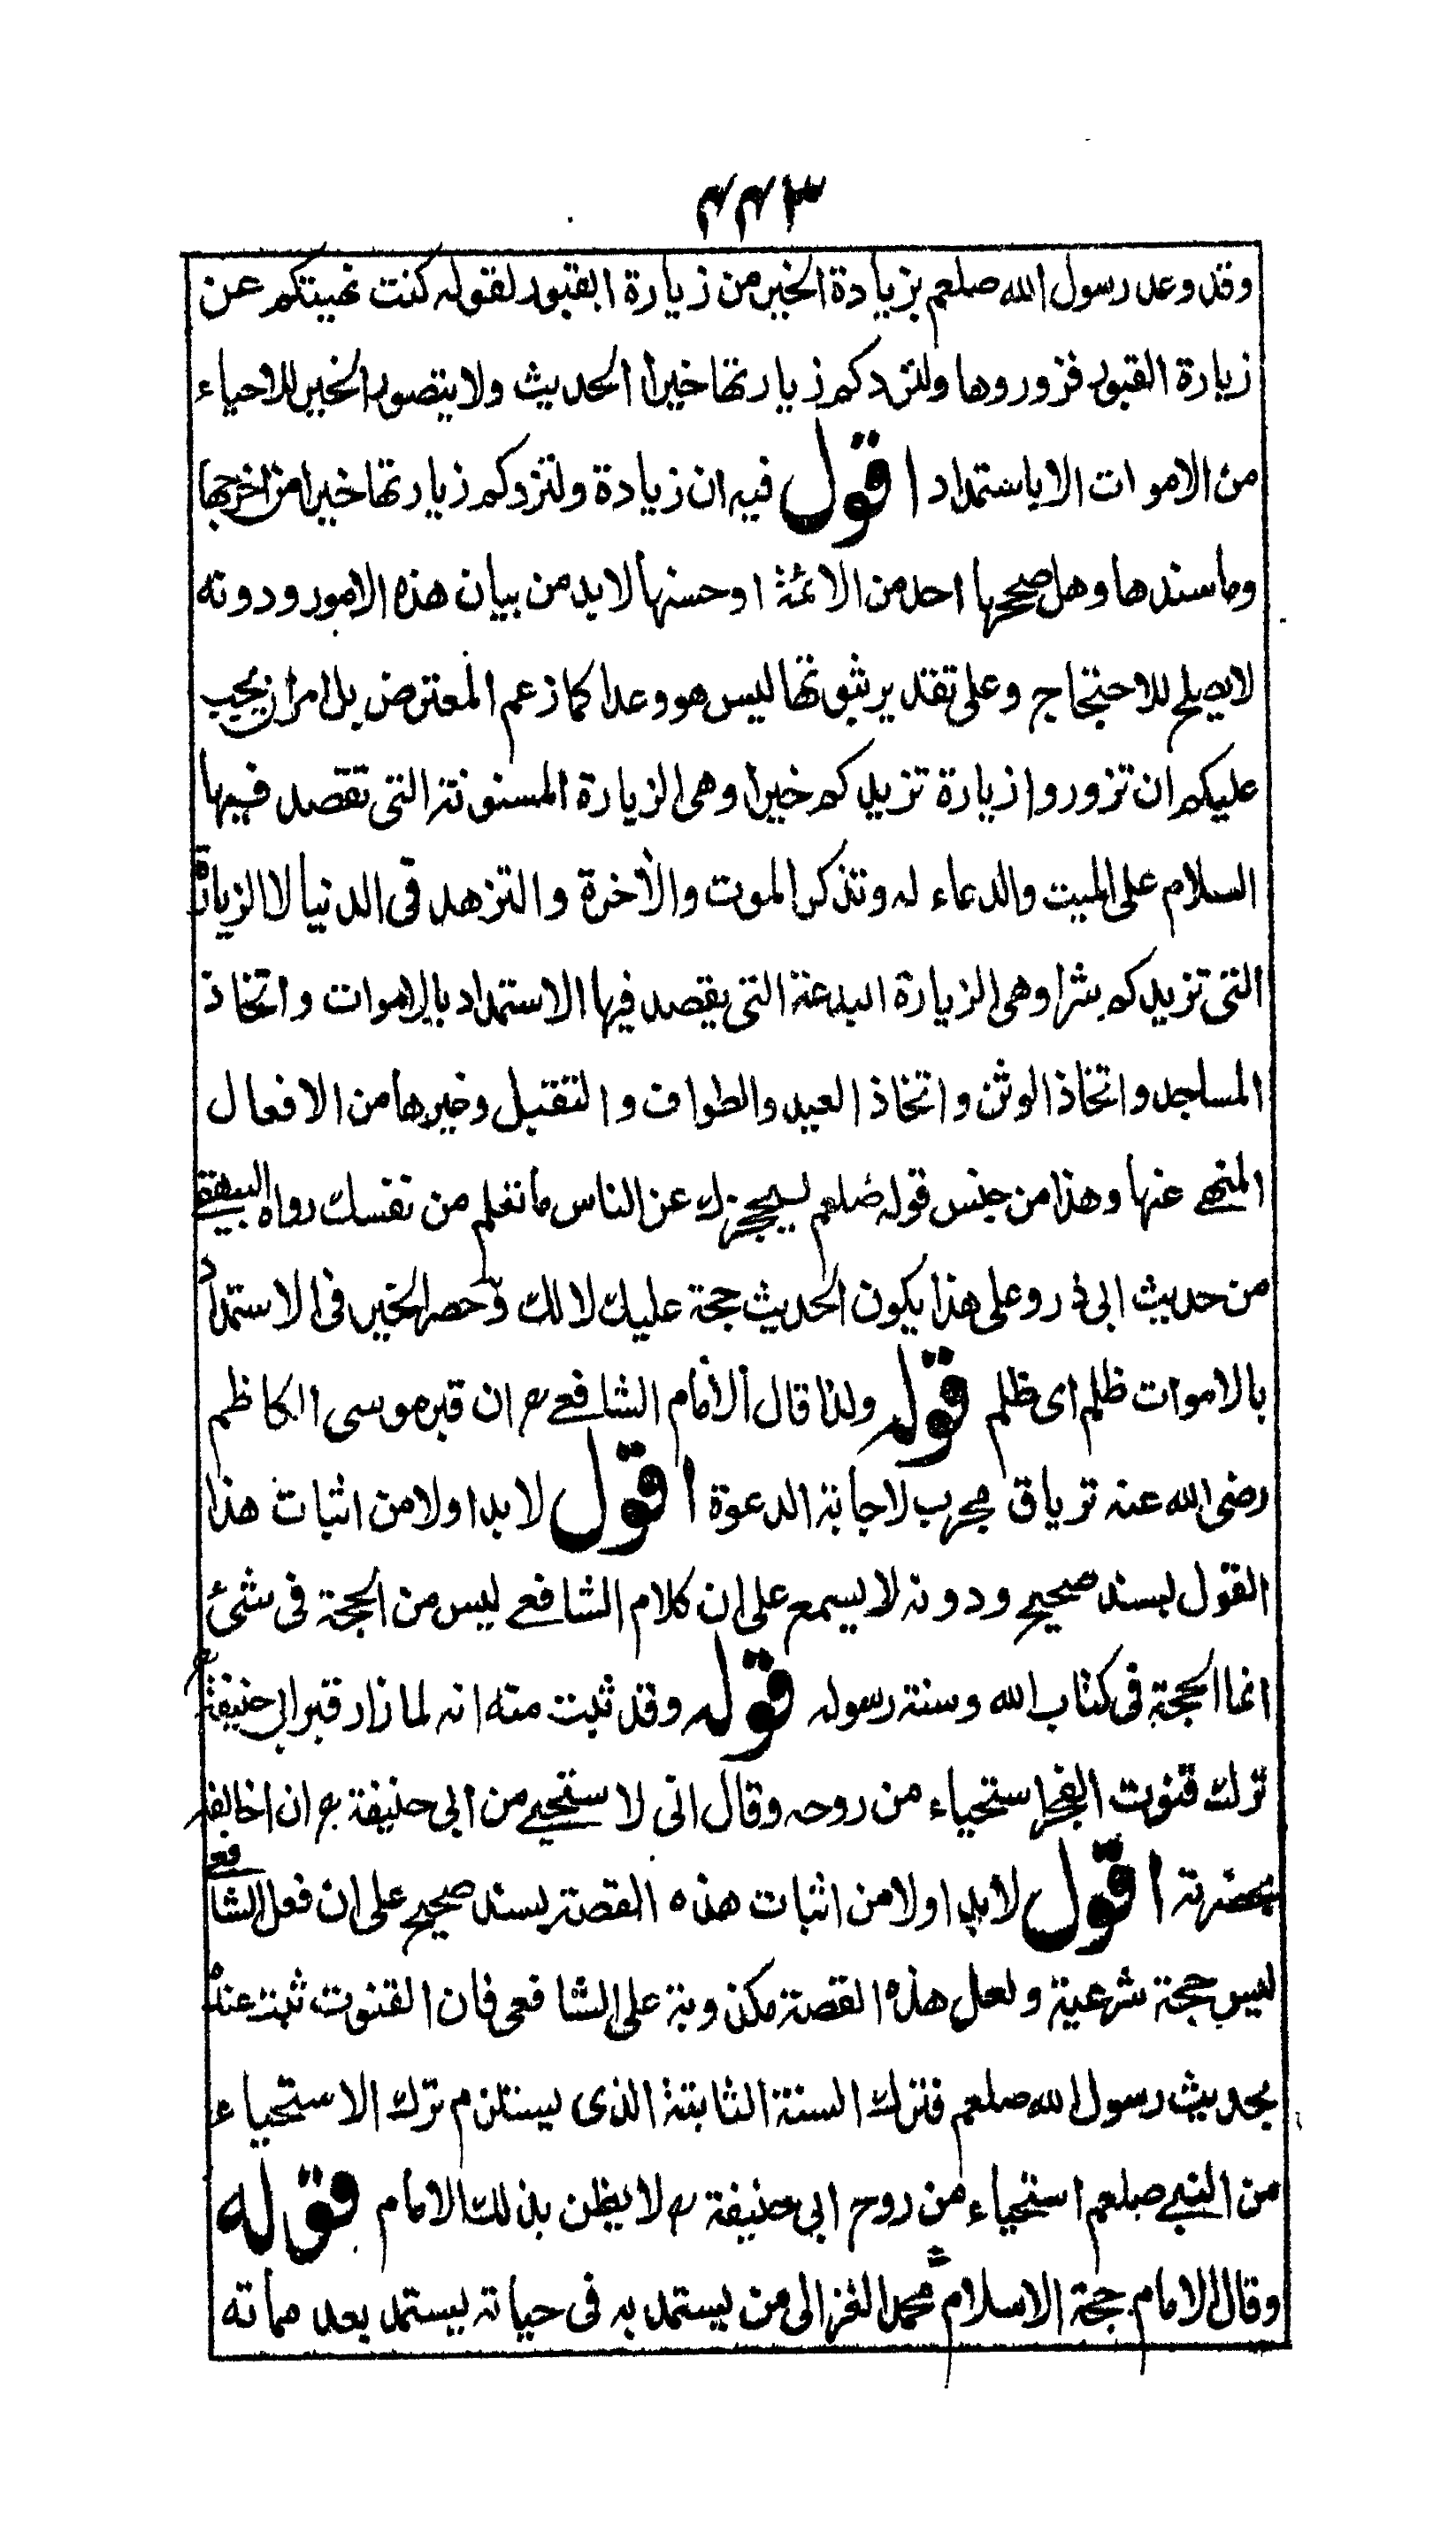 ٤٤٣
وقد وعد رسول الله صلعم بزيادة الخير من زيارة القبور لقوله كنت نهيتكم عن
زيارة القبور فزوروها ولتزدكم زيارتها خيرا الحديث ولا يتصور الخير للاحياء
من الاموات الا باستمداد اقول فيه ان زيادة ولتزدكم زيارتها خيرا من اخرجها
وما سندها وهل صححها احد من الائمة او حسنها لابد من بيان هذه الامور ودونه
لا يصلح للاحتجاج وعلى تقدير ثبوتها ليس هو وعدا كما زعم المعترض بل امر ان يجب
عليكم ان تزوروا زيارة تزيدكم خيرا وهى الزيارة المسنونة التى تقصد فيها
السلام على الميت والدعاء له وتذكر الموت والآخرة والتزهد فى الدنيا لا الزيارة
التى تزيدكم شرا وهى الزيارة البدعة التى يقصد فيها الاستمداد بالاموات واتخاذ
المساجد واتخاذ الوثن واتخاذ العيد والطواف والتقبيل وغيرها من الافعال
المنهے عنها وهذا من جنس قوله صلعم ليحجزك عن الناس ما تعلم من نفسك رواه البيهقے
من حديث ابى ذر وعلى هذا يكون الحديث حجة عليك لا لك وحصر الخير فى الاستمداد
بالاموات ظلم اى ظلم قوله ولذا قال الامام الشافعے رح ان قبر موسى الكاظم
رضى الله عنه ترياق مجرب لاجابة الدعوة اقول لابد اولا من اثبات هذا
القول بسند صحيح ودونه لا يسمع على ان كلام الشافعے ليس من الحجة فى شئ
انما الحجة فى كتاب الله وسنة رسوله قوله وقد ثبت منه انه لما زار قبر ابى حنيفة رح
ترك قنوت الفجر استحياء من روحه وقال انى لا ستحيے من ابى حنيفة رح ان اخالفه
بحضرته اقول لابد اولا من اثبات هذه القصة بسند صحيح على ان فعل الشافعے
ليس حجة شرعية ولعل هذه القصة مكذوبة على الشافعى فان القنوت ثبت عنده
بحديث رسول الله صلعم فترك السنة الثابتة الذى يستلزم ترك الاستحياء
من النبے صلعم استحياء من روح ابى حنيفة رح لا يظن بذلك الامام قوله
وقال الامام حجة الاسلام محمد الغزالى من يستمد به فى حياته يستمد بعد مماته